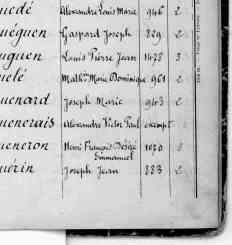 uedé Alexandre Louis Marie 946 2
uéguen Gaspard Joseph 829 2
uguen Louis Pierre Jean 1078 3
uelé Marie Dominique 961 2
uenard Joseph Marie 943 2
uenerais Alexandre Victor Paul exempt
ueneron Henri François Désiré 1070
Emmanuel
uérin Joseph Jean 883 2